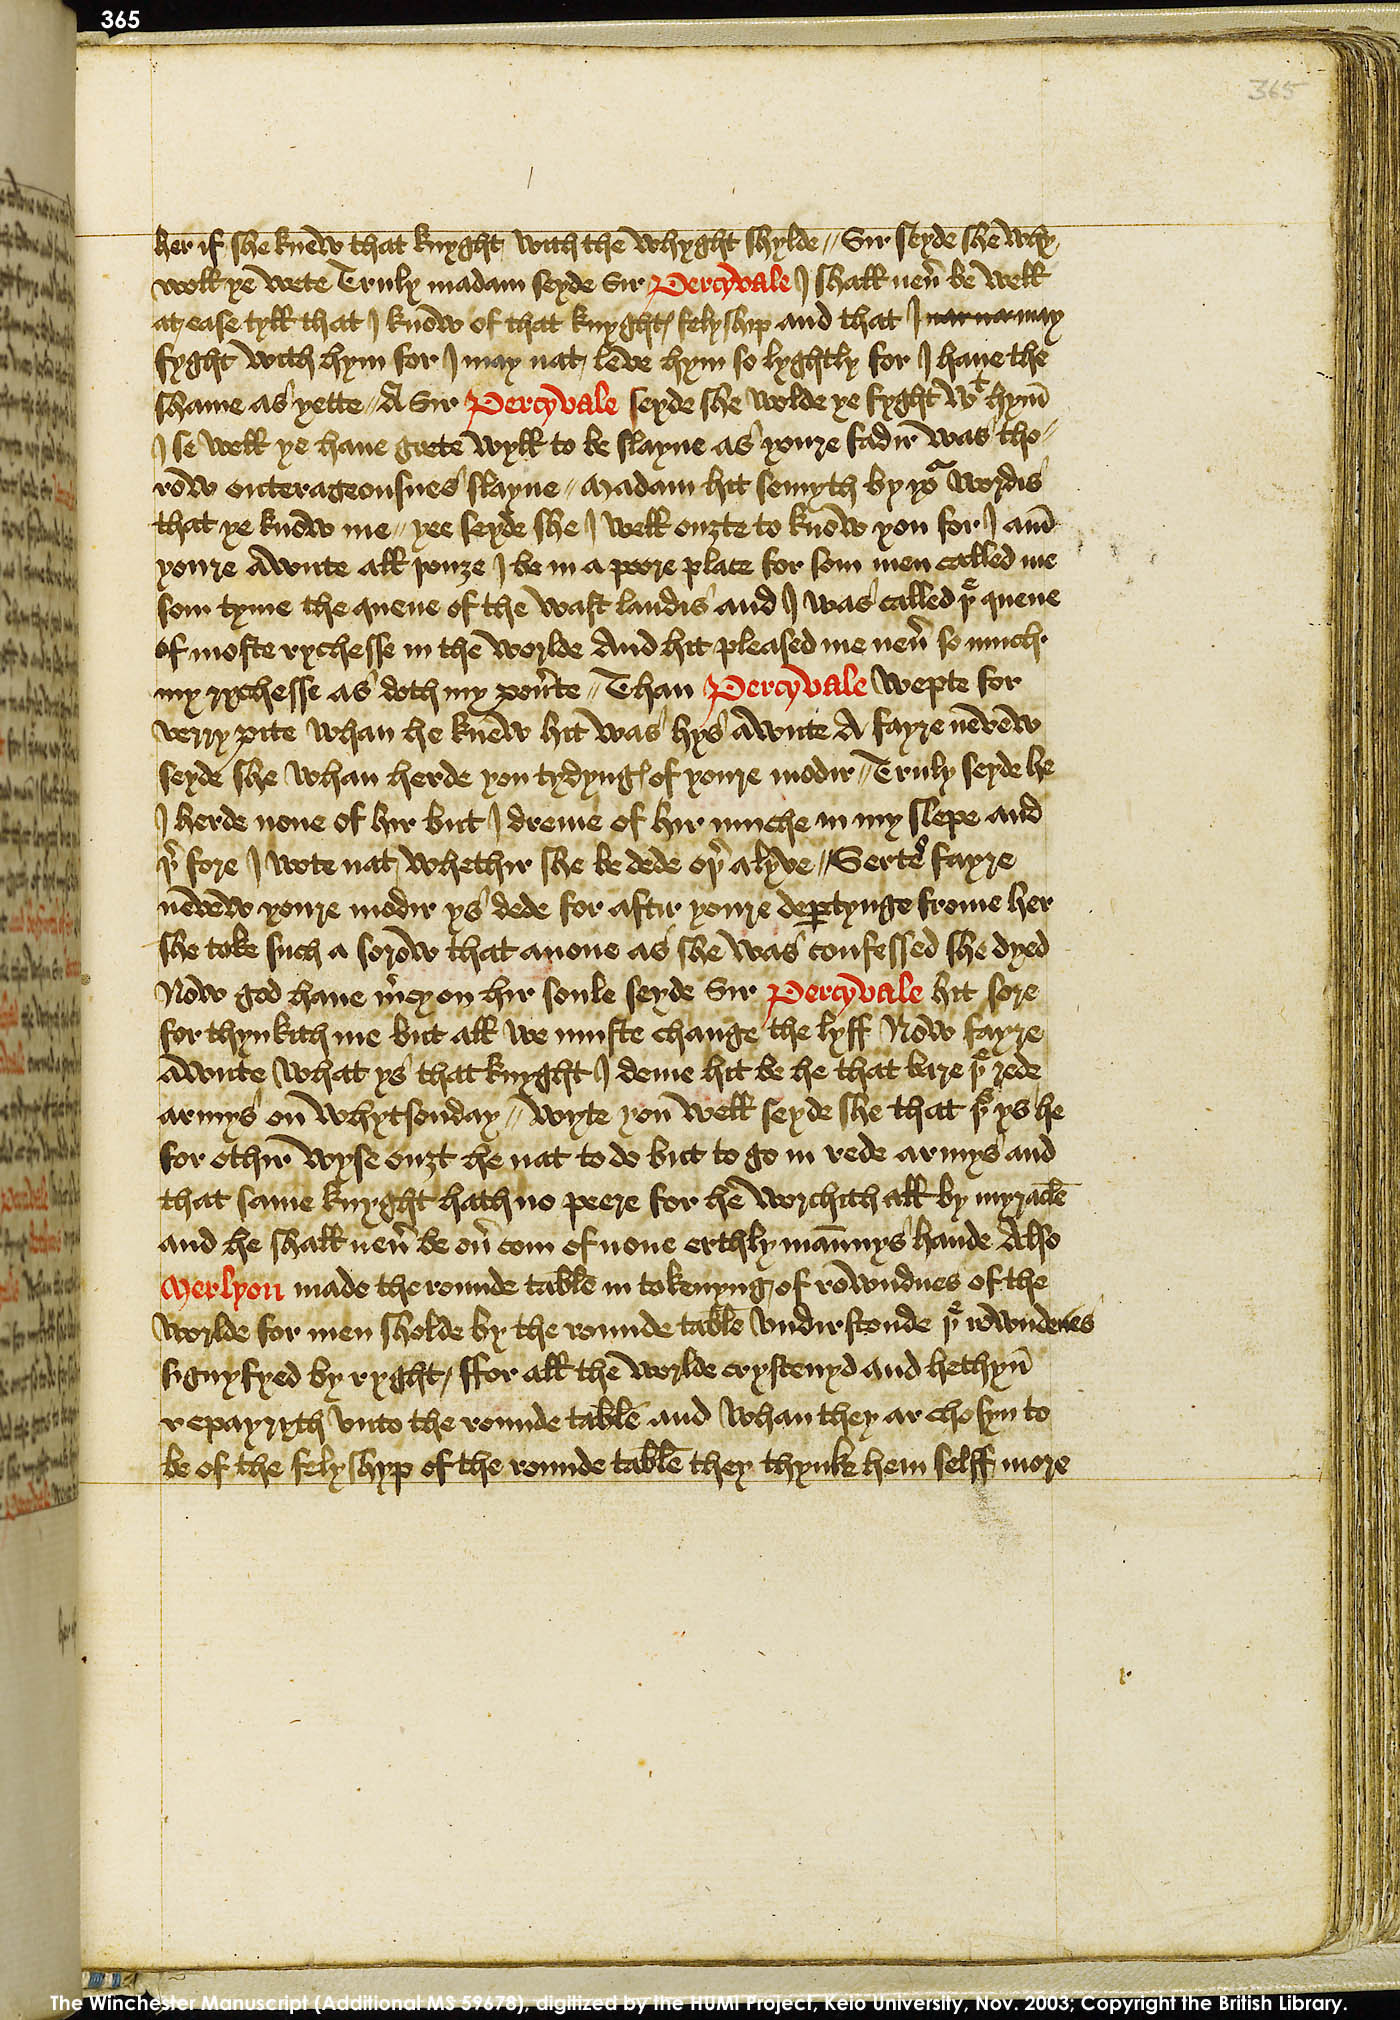 365
365
her if she knew that knyght with the whyght shylde // Sir seyde she why
woll ye wete Truly madam seyde Sir Percyvale I shall neu̾ be well
at ease tyll that I know of that knyght felyshyp and that I may
fyght with hym for I may nat leve hym so lyghtly for I haue the
shame as yette // A Sir Percyvale seyde she wolde ye fyght wᵗ hym̄
I se well ye haue grete wyll to be slayne as youre fadir was tho-
row outerageousnes slayne // Madam hit semyth by yoᵃ wordis
that ye know me // yee seyde she I well ouzte to know you for I am̄
youre awnte all youze I be in a poore place for som men called me
som tyme the quene of the wast landis and I was called þᵉ quene
of moste rychesse in the worlde And hit pleased me neu̾ so much
my rychesse as doth my pou̾te // Than Percyvale wepte for
verry pite whan he knew hit was hys awnte A fayre nevew
seyde she whan herde you tydyngꝭ of youre modir // Truly seyde he
I herde none of hir but I dreme of hir muche in my slepe and
þ̾ fore I wote nat whethir she be dede oþ̾ alyve // Sertes fayre
nevew youre modir ys dede for aftir youre deꝑtynge frome her
she toke such a sorow that anone as she was confessed she dyed
Now god haue m̾cy on hir soule seyde Sir Percyvale hit sore
forthynkith me but all we muste change the lyff Now fayre
awnte what ys that knyght I deme hit be he that bare þᵉ rede
armys on whytsonday // wyte you well seyde she that þⁱˢ ys he
for othir wyse ouzt he nat to do but to go in rede armys and
that same knyght hath no peere for he worchith all by myracle
and he shall neu̾ be ou̾ com of none erthly man̄nys hande Also
Merlyon made the rounde table in tokenyng of rowndnes of the
worlde for men sholde by the rounde table undirstonde þᵉ rowndenes
signyfyed by ryght / ffor all the worlde crystenyd and hethyn̄
repayryth vnto the rounde table and whan they ar chosyn to
be of the felyshyp of the rounde table they thynke hem selff more
The Winchester Manuscript (Additional MS 59678), digitized by the HUMI Project, Keio University, Nov. 2003; Copyright the British Library.